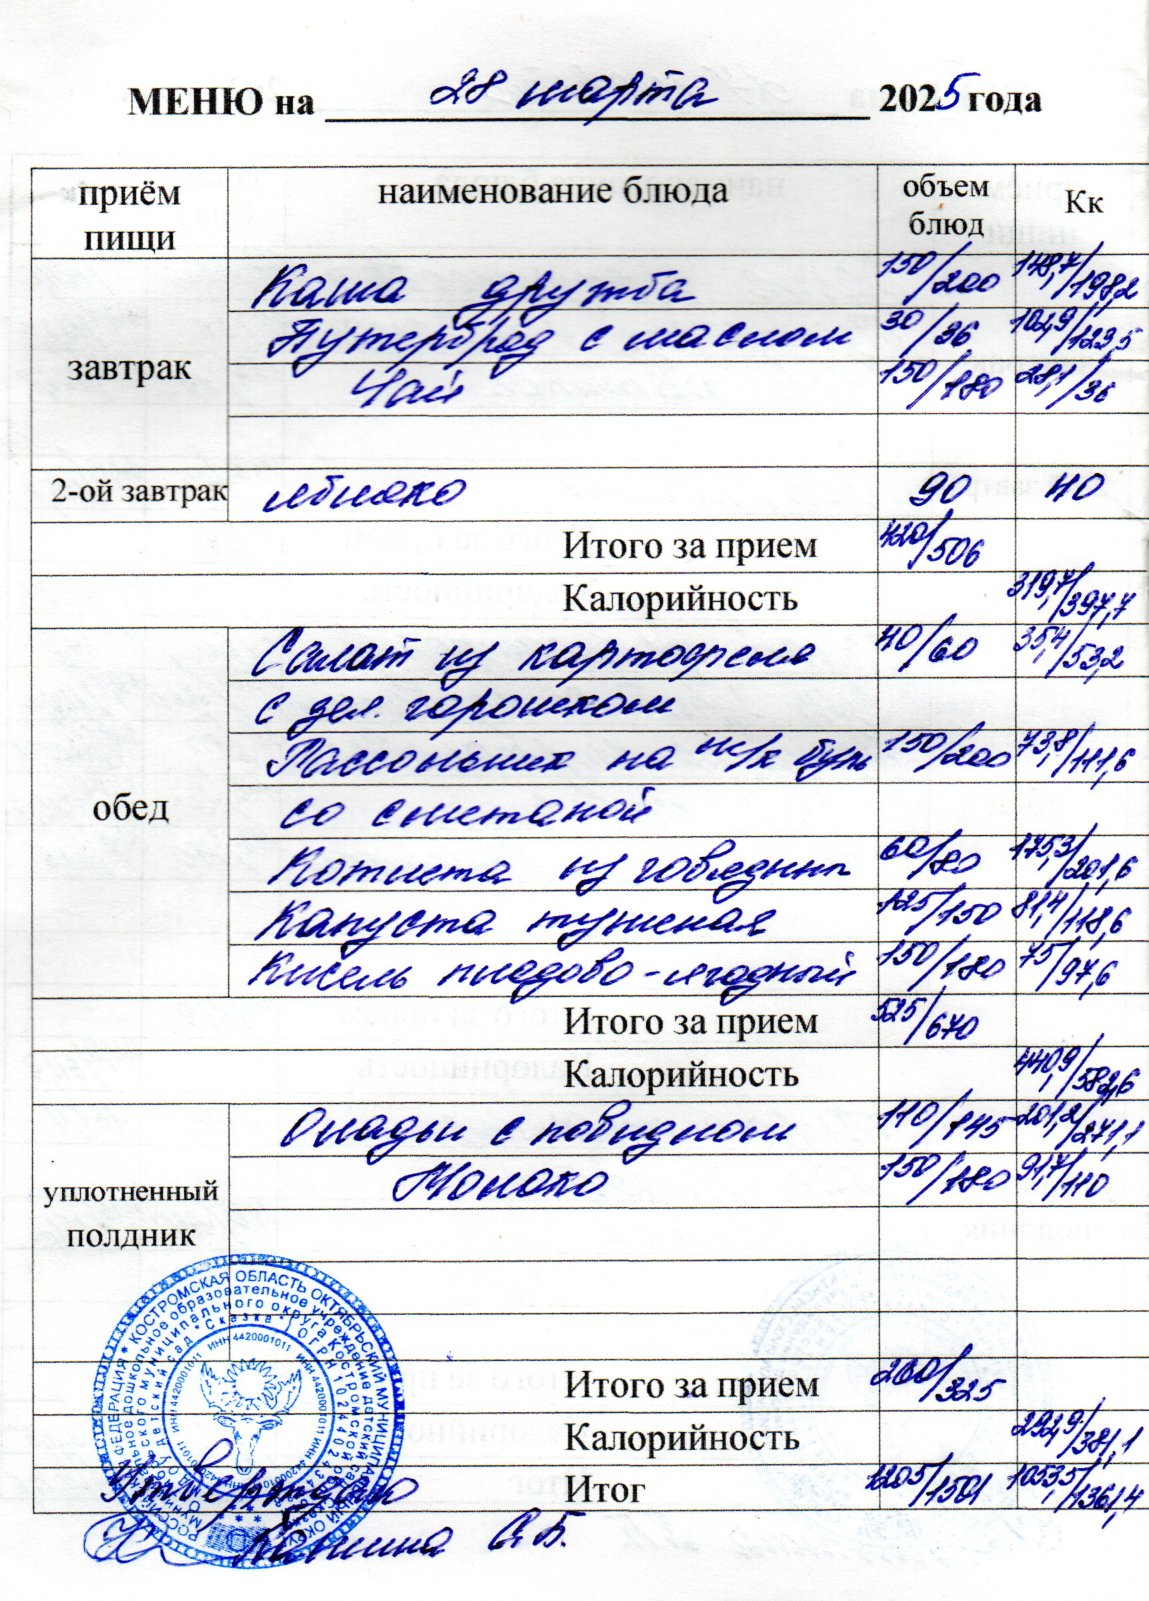 МЕНЮ на 28 марта 2025 года
приём пищи наименование блюда объем блюд Кк
завтрак
Каша дружба 150/200 148,7/198,2
Бутерброд с маслом 30/36 102,9/123,5
Чай 150/180 28,1/36
2-ой завтрак яблоко 90 40
Итого за прием 420/506
Калорийность 319,7/397,7
обед
Салат из картофеля 40/60 35,4/53,2
с зел. горошком
Рассольник на м/к бул 150/200 73,8/111,6
со сметаной
Котлета из говядины 60/80 175,3/201,6
Капуста тушеная 125/150 81,4/118,6
Кисель плодово-ягодный 150/180 75/97,6
Итого за прием 525/670
Калорийность 440,9/582,6
уплотненный полдник
Оладьи с повидлом 110/145 201,2/271,1
Молоко 150/180 91,7/110
Итого за прием 260/325
Калорийность 292,9/381,1
Итог 1205/1501 1053,5/1361,4
РОССИЙСКАЯ ФЕДЕРАЦИЯ * КОСТРОМСКАЯ ОБЛАСТЬ ОКТЯБРЬСКИЙ МУНИЦИПАЛЬНЫЙ ОКРУГ
ИНН 4420001011
Утверждаю
А.Б.